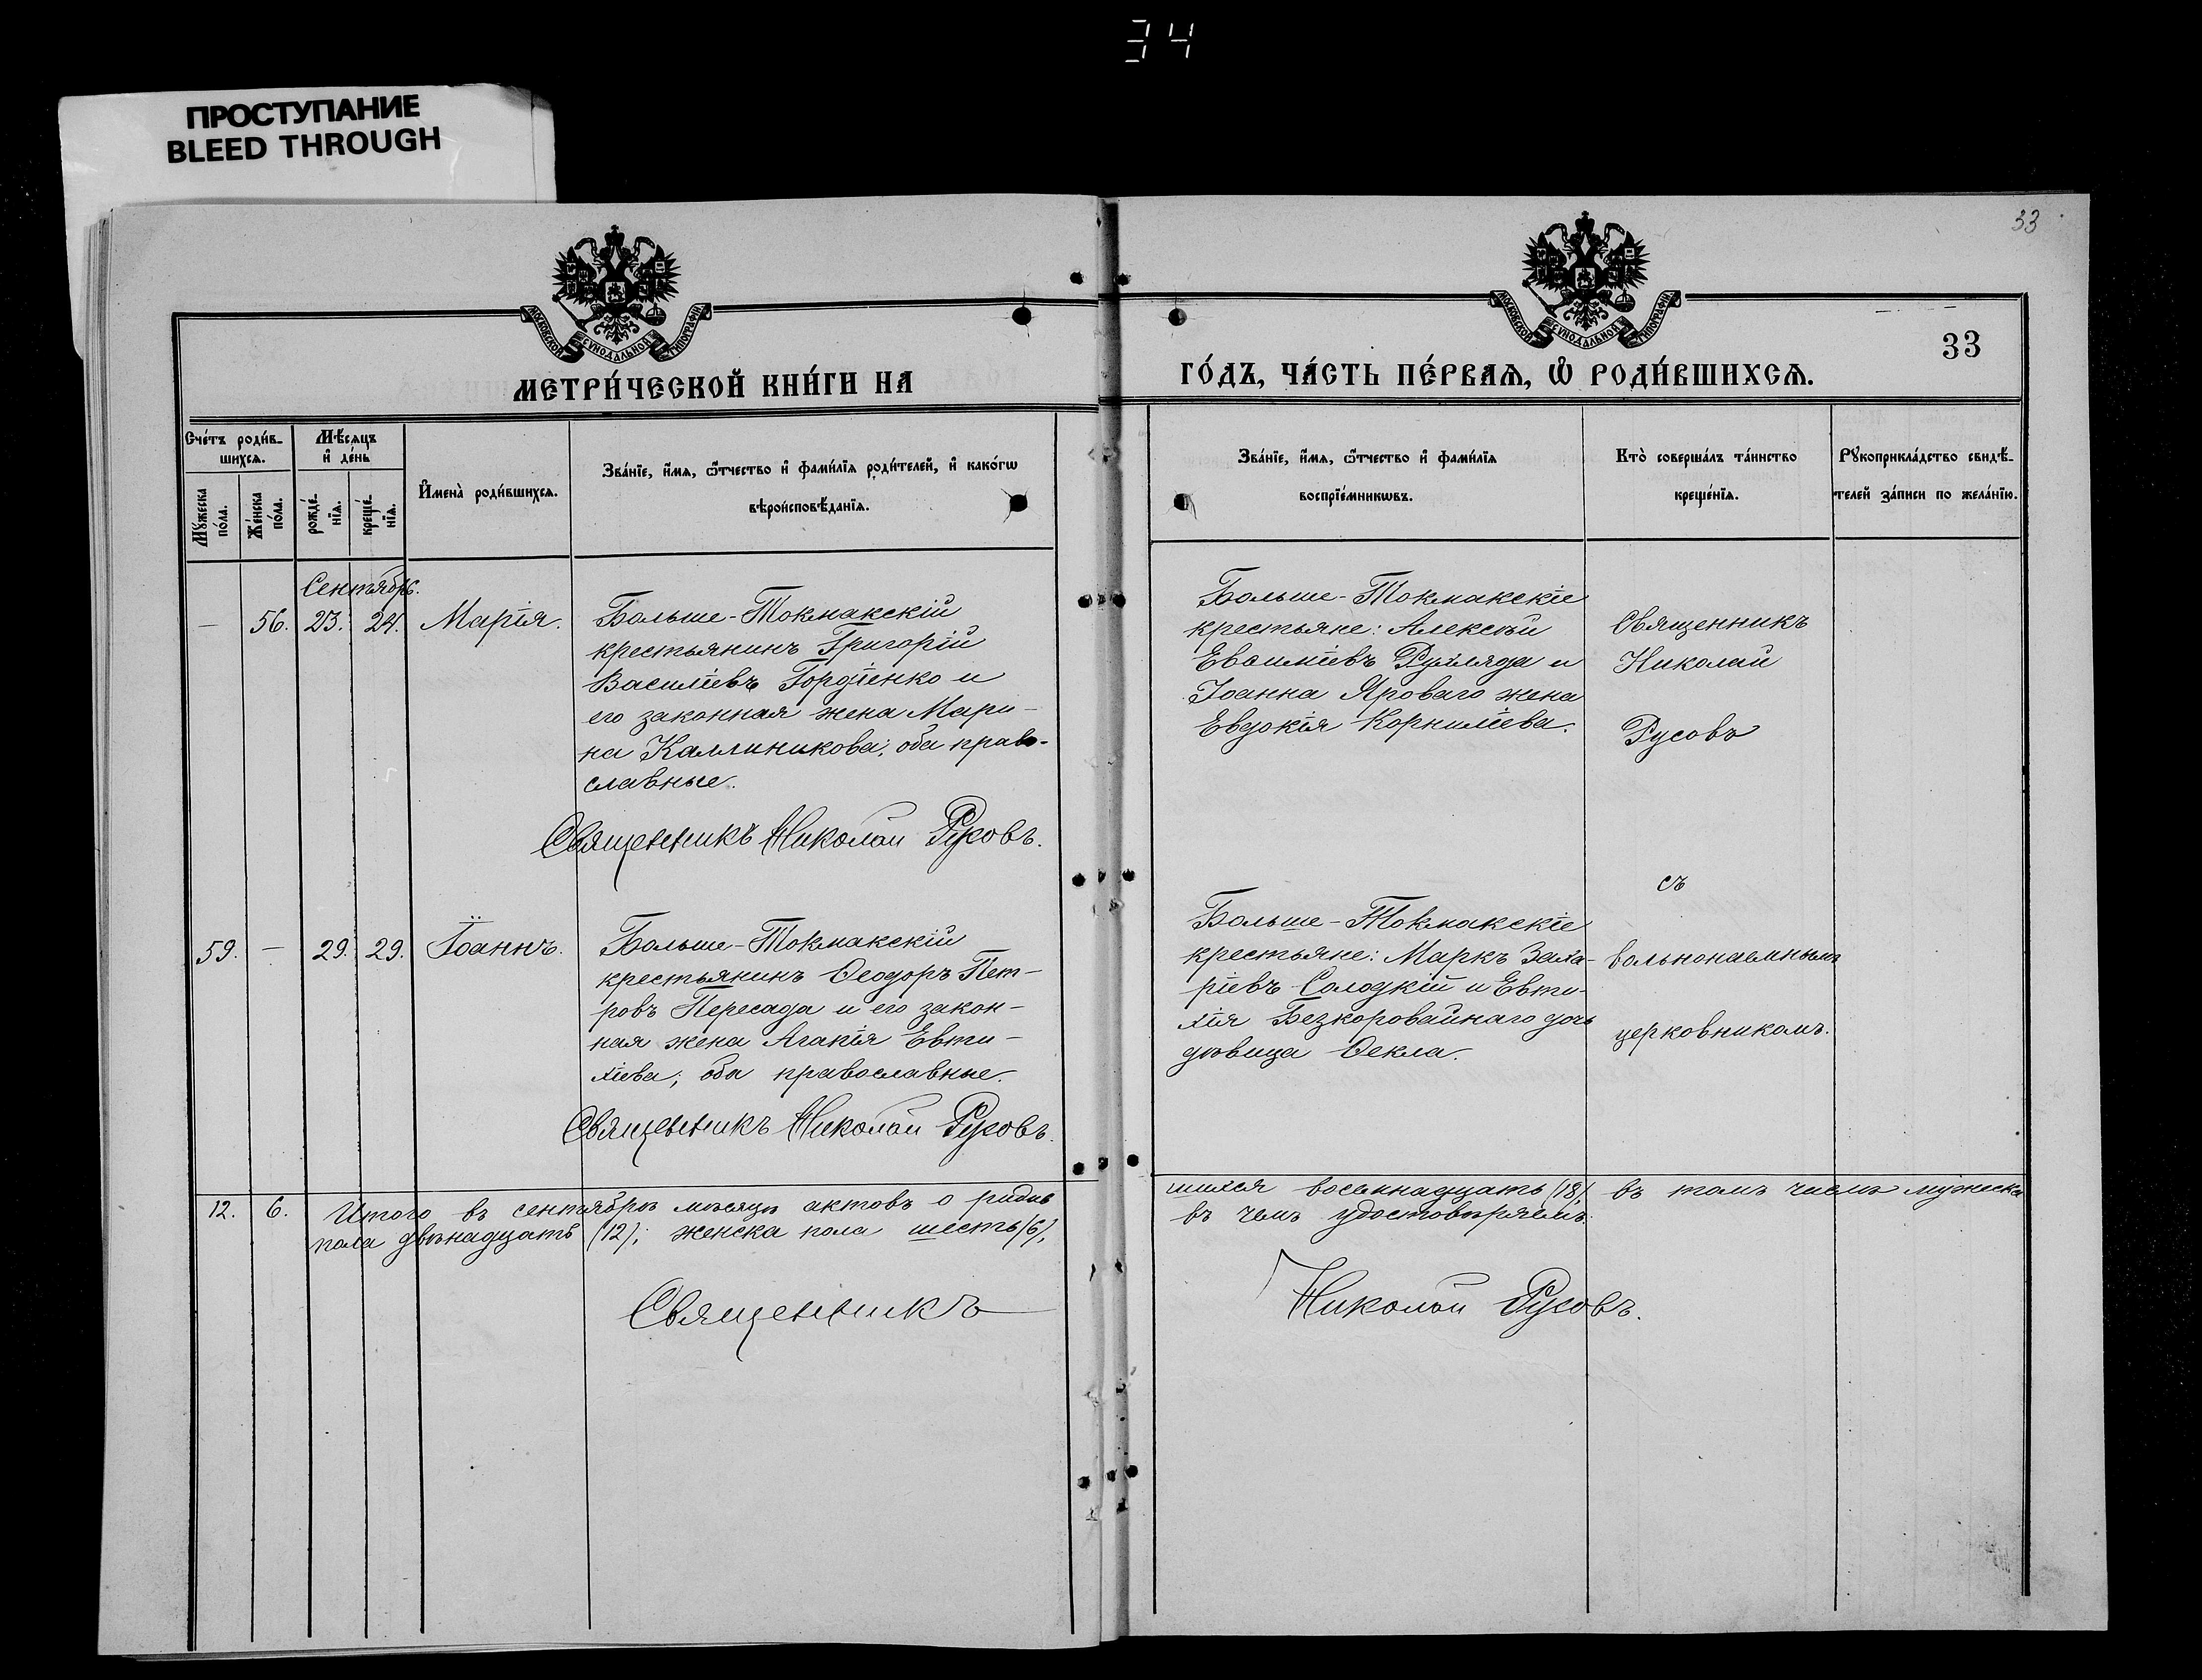 34
ПРОСТУПАНИЕ
BLEED THROUGH
33
МОСКОВСКОЙ СУНОДАЛЬНОЙ ТИПОГРАФІИ
МОСКОВСКОЙ СУНОДАЛЬНОЙ ТИПОГРАФІИ
33
МЕТРИ́ЧЕСКОЙ КНИ́ГИ НА
ГО́ДЪ, ЧА́СТЬ ПЕ́РВАѦ, Ѡ РОДИ́ВШИХСѦ.
Сче́тъ роди́в-
шихсѧ.
Мѣ́сѧцъ
и҆ де́нь
Мꙋ́жеска
по́ла.
Же́нска
по́ла.
рожде́-
нїѧ.
креще́-
нїѧ.
И҆мена̀ роди́вшихсѧ.
Зва́нїе, и҆́мѧ, ѻ҆́тчество и҆ фами́лїѧ роди́телей, и҆ како́гѡ
вѣроисповѣ́данїѧ.
Зва́нїе, и҆́мѧ, ѻ҆́тчество и҆ фами́лїѧ
воспрїе́мникѡвъ.
Кто̀ соверша́лъ та́инство
креще́нїѧ.
Рꙋкоприкла́дство свидѣ́-
телей за́писи по жела́нїю.
Сентябрь.
— 56. 23. 24. Марія.
Больше-Токмакскій
крестьянинъ Григорій
Василіевъ Гордіенко и
его законная жена Мари-
на Каллиникова; оба право-
славные.
Священникъ Николай Русовъ.
Больше-Токмакскіе
крестьяне: Алексѣй
Евѳиміевъ Руляда и
Іоанна Яроваго жена
Евдокія Корниліева.
Священникъ
Николай
Русовъ
59. — 29. 29. Іоаннъ.
Больше-Токмакскій
крестьянинъ Ѳеодоръ Пет-
ровъ Пересада и его закон-
ная жена Агапія Евти-
хіева; оба православные.
Священникъ Николай Русовъ.
Больше-Токмакскіе
крестьяне: Маркъ Заха-
ріевъ Солодкій и Евти-
хія Безкоровайнаго дочь
дѣвица Ѳекла.
съ
вольнонаемнымъ
церковникомъ.
12. 6. Итого въ сентябрѣ мѣсяцѣ актовъ о родив
шихся восемнадцать (18), въ томъ числѣ мужеска
пола двѣнадцать (12); женска пола шесть (6),
въ чемъ удостовѣряемъ:
Священникъ
Николай Русовъ.